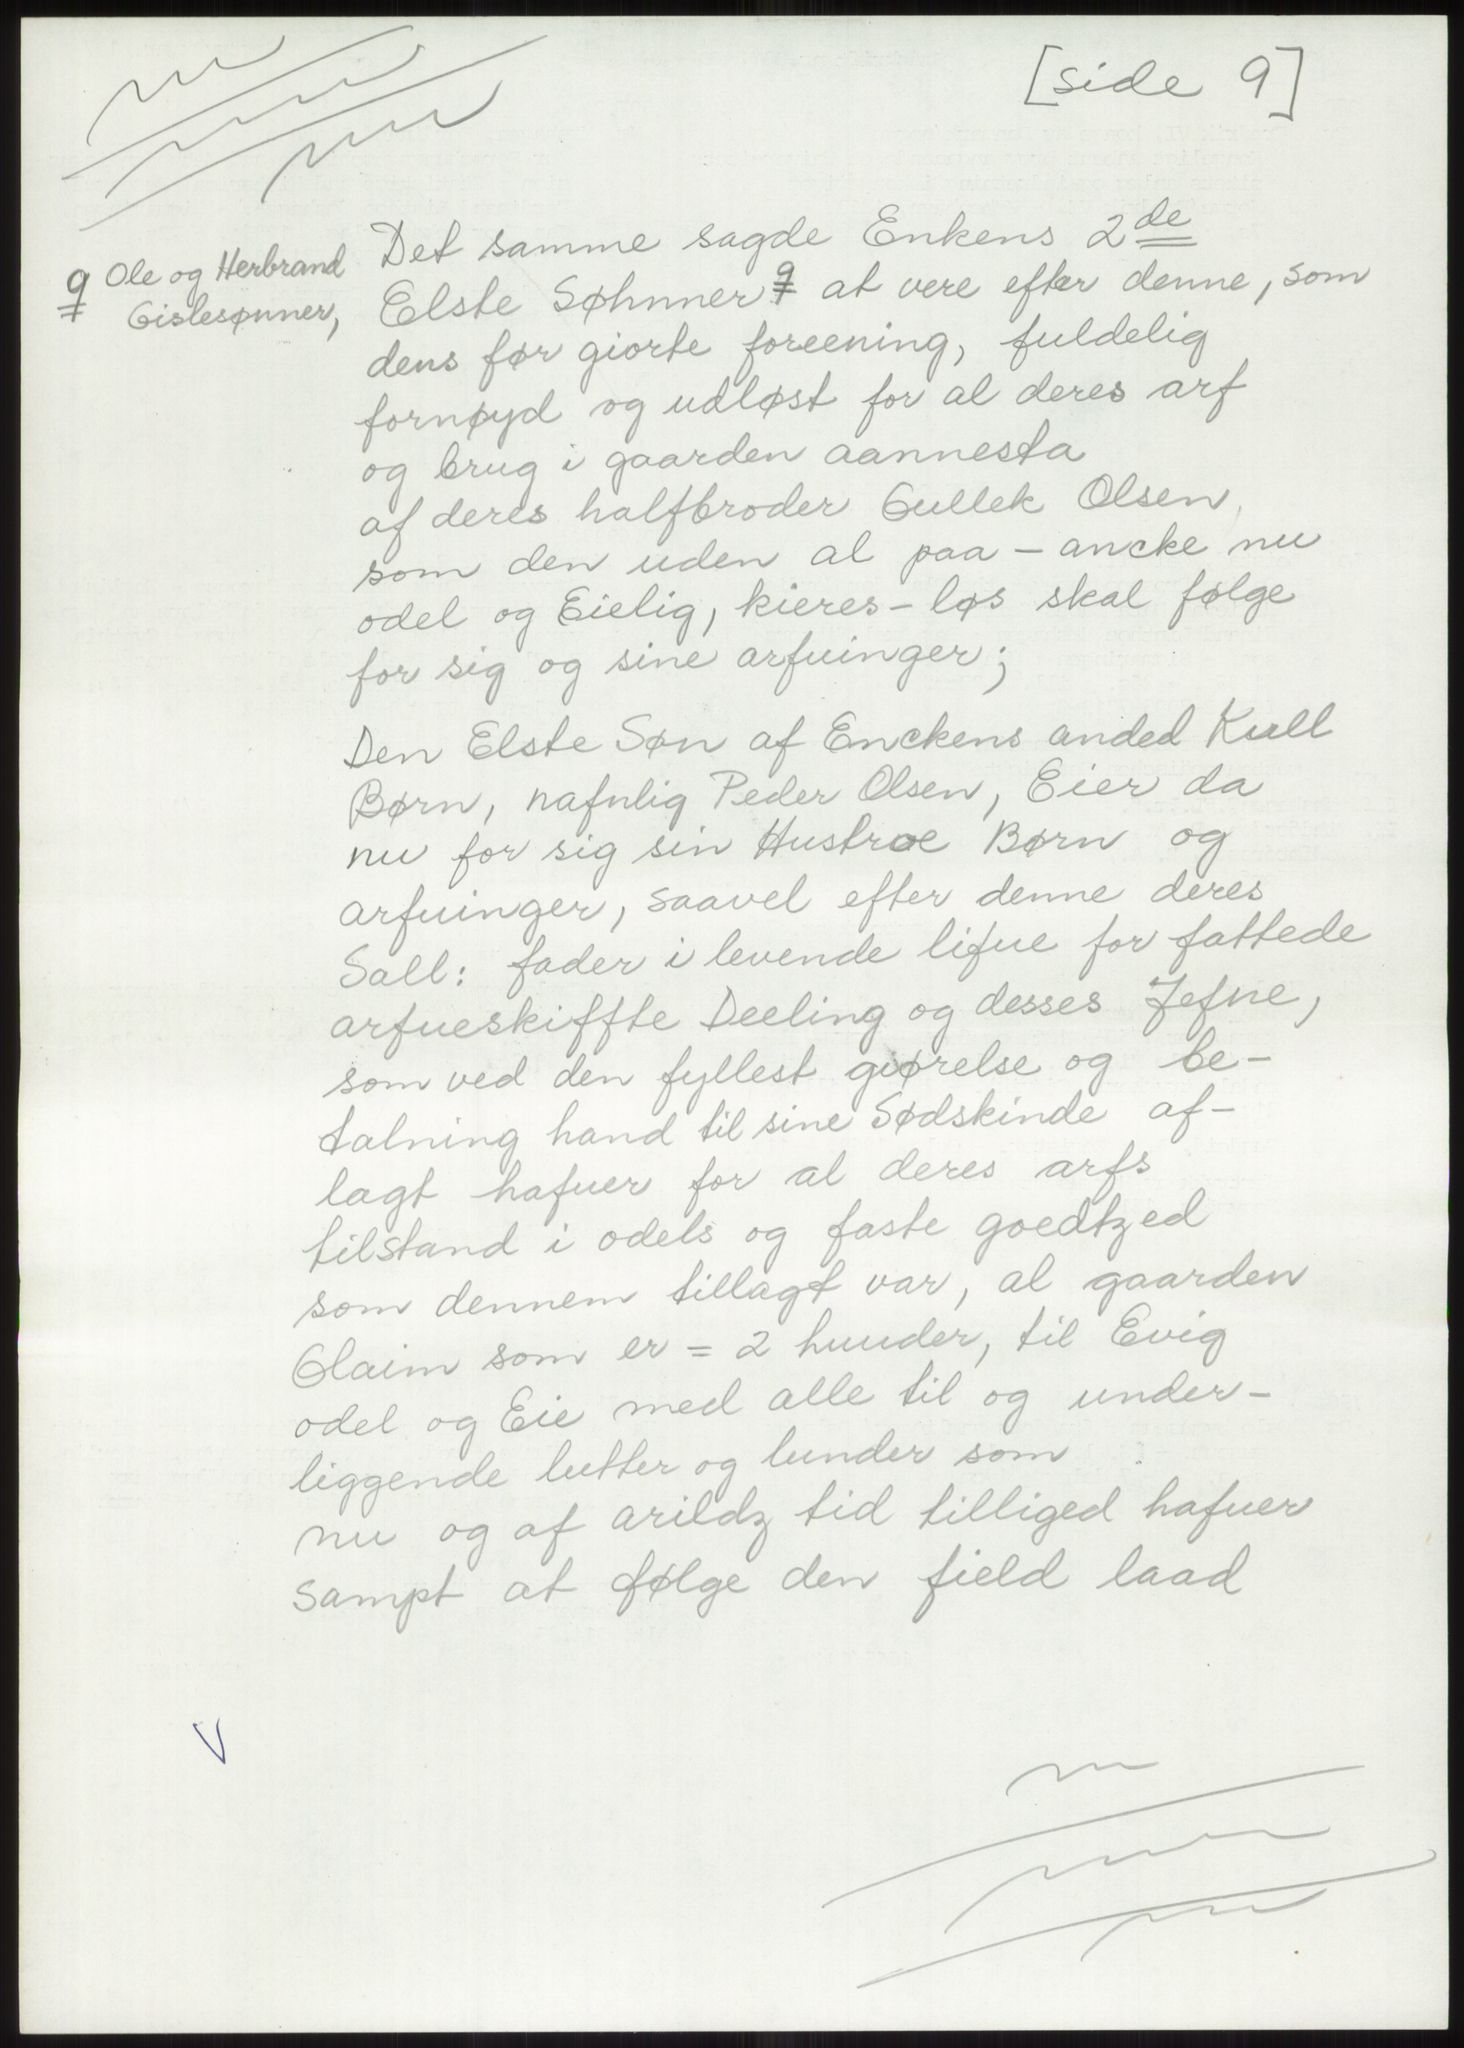 [side 9]
Det samme sagde Enkens 2de
9 Ole og Herbrand
Gislesønner,
Elste Søhnner 9 at vere efter denne, som
dens før giorte foreening, fuldelig
fornøyd og udløst for al deres arf
og brug i gaarden aannesta
af deres halfbroder Gullek Olsen,
som den uden al paa-ancke nu
odel og Eielig, kieres-løs skal følge
for sig og sine arfuinger;
Den Elste Søn af Enckens anded Kull
Børn, nafnlig Peder Olsen, Eier da
nu for sig sin Hustroe Børn og
arfuinger, saavel efter denne deres
Sall: fader i levende lifue for fattede
arfueskiffte Deeling og desses Jefne,
som ved den fyllest giørelse og be-
talning hand til sine Sødskinde af-
lagt hafuer for al deres arfs
tilstand i odels og faste goedtzed
som dennem tillagt var, al gaarden
Glaim som er = 2 huuder, til Evig
odel og Eie med alle til og under-
liggende lutter og lunder som
nu og af arildz tid tilliged hafuer
sampt at følge den field laad
V